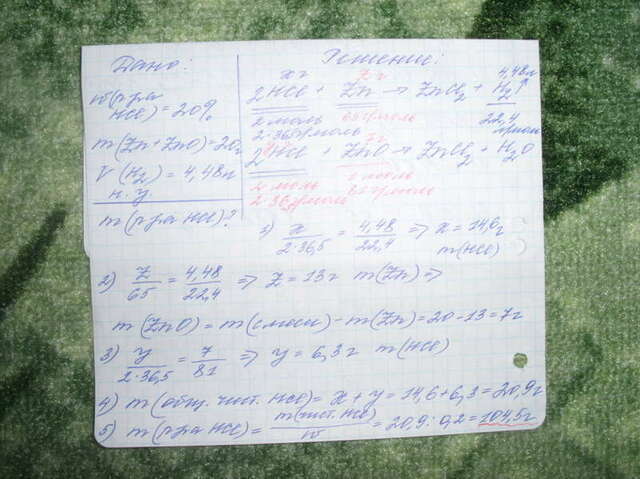 Дано:
w(р-ра
HCl) = 20%
m(Zn+ZnO)=20г
V(H2) = 4,48л
н.у
m(р-ра HCl)?
Решение:
x г 4,48л
2HCl + Zn → ZnCl2 + H2↑
2 моль 65г/моль 22,4
2·36,5г/моль л/моль
7г
2HCl + ZnO → ZnCl2 + H2O
2 моль 1 моль
2·36,5г/моль 81г/моль
1) x/2·36,5 = 4,48/22,4 => x = 14,6г
m(HCl)
2) z/65 = 4,48/22,4 => z = 13г m(Zn) =>
m(ZnO) = m(смеси) - m(Zn) = 20-13 = 7г
3) y/2·36,5 = 7/81 => y = 6,3г m(HCl)
4) m(общ. чист. HCl) = x + y = 14,6+6,3 = 20,9г
5) m(р-ра HCl) = m(чист. HCl)/w = 20,9 : 0,2 = 104,5г